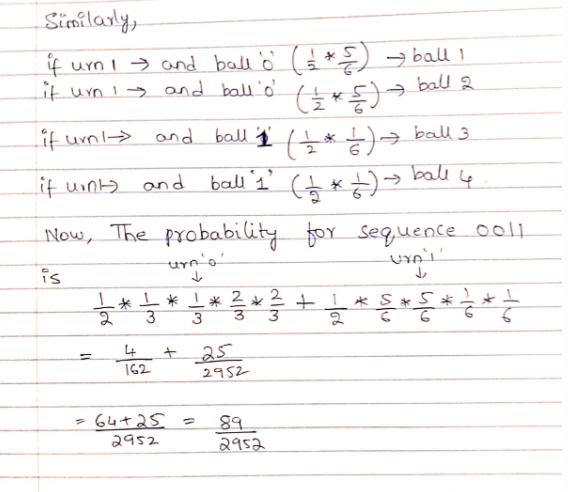 Similarly,
if urn 1 → and ball '0' (1/2 * 5/6) → ball 1
if urn 1 → and ball '0' (1/2 * 5/6) → ball 2
if urn 1→ and ball '1' (1/2 * 1/6) → ball 3
if urn1→ and ball '1' (1/2 * 1/6) → ball 4
Now, The probability for sequence 0011
is urn '0' ↓ urn '1' ↓
1/2 * 1/3 * 1/3 * 2/3 * 2/3 + 1/2 * 5/6 * 5/6 * 1/6 * 1/6
= 4/162 + 25/2952
= 64+25/2952 = 89/2952